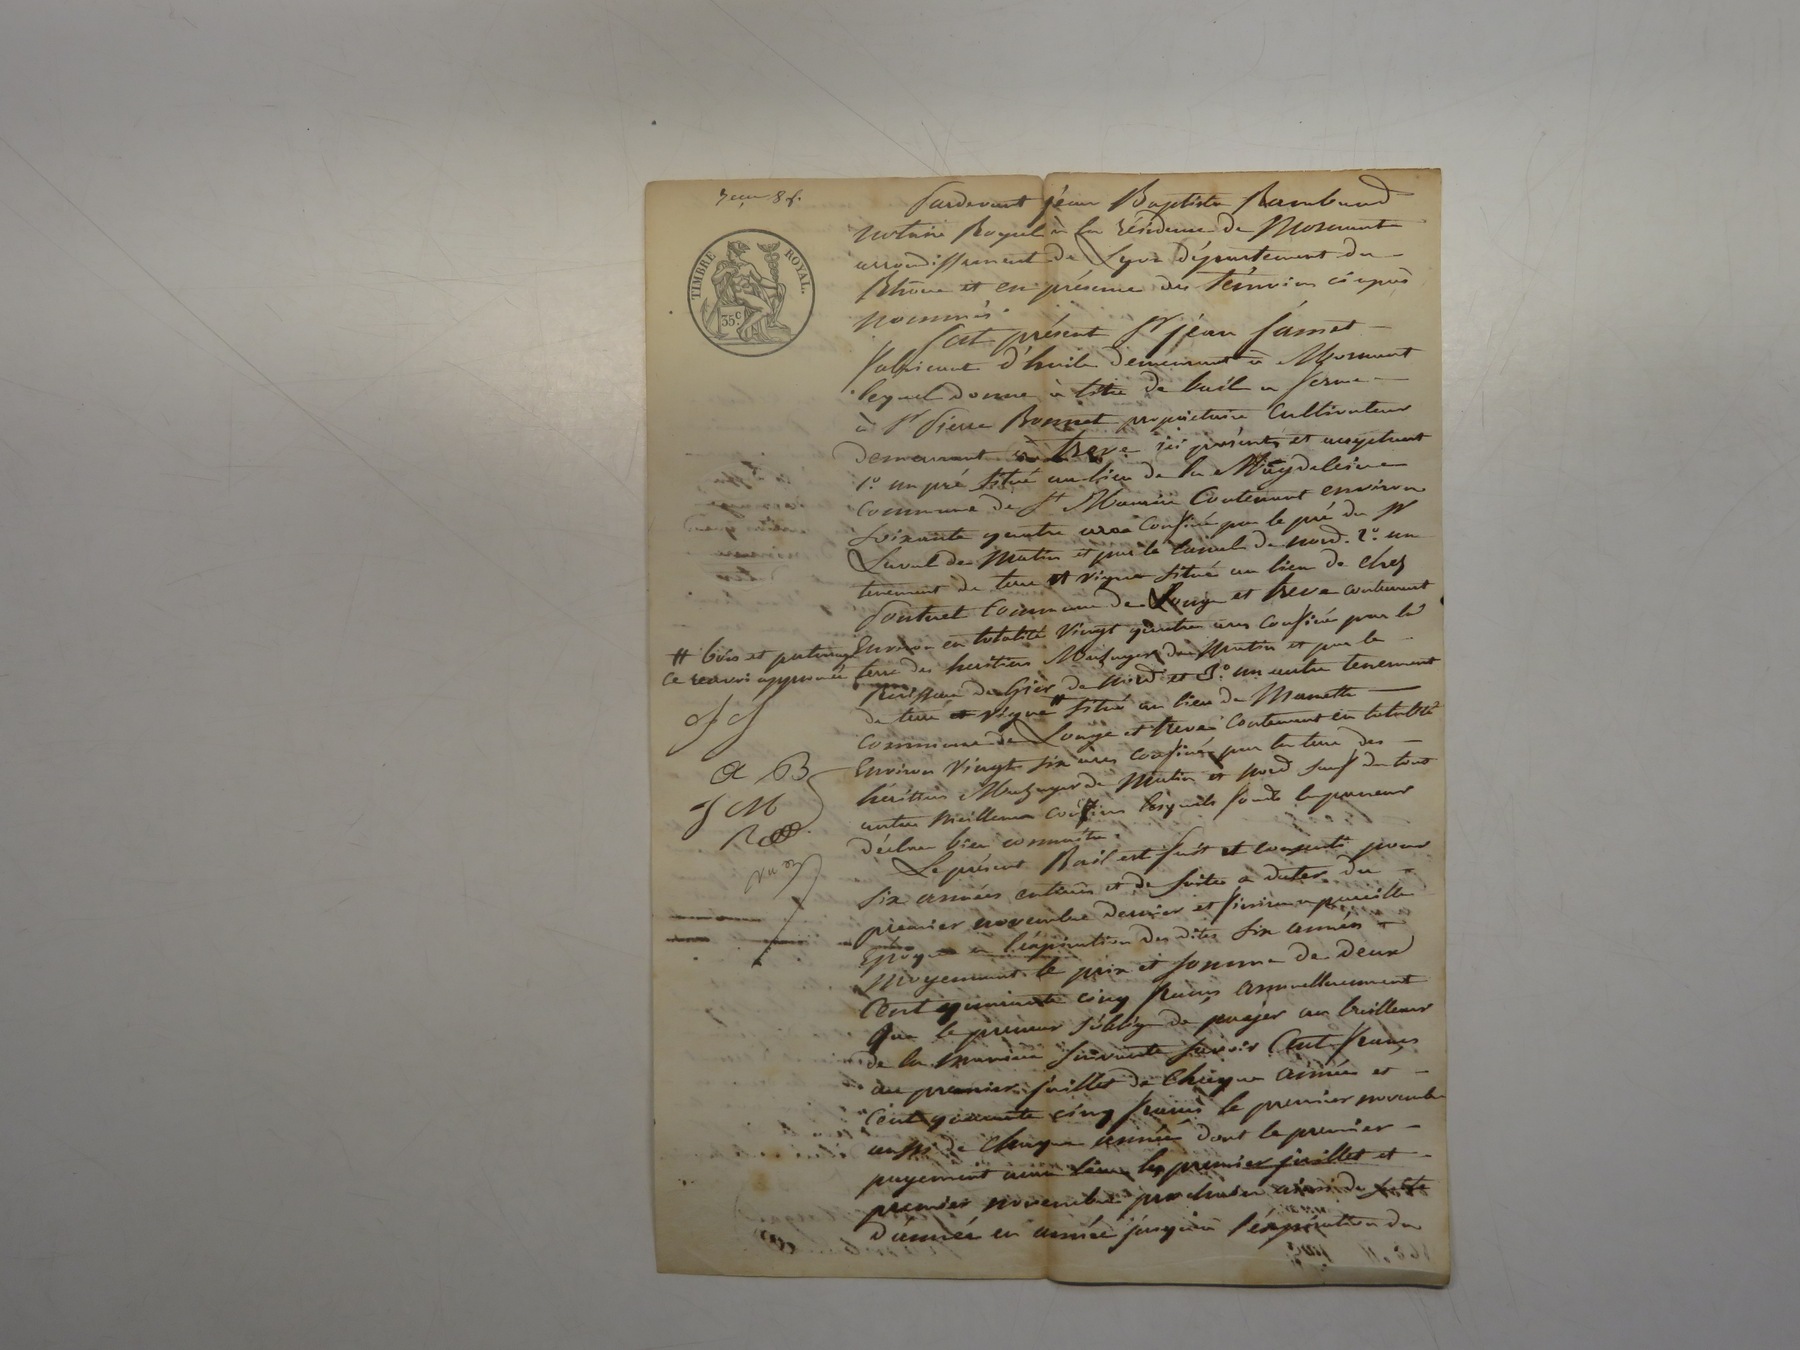 reçu 8 f.
TIMBRE ROYAL.
35 c.
Pardevant jean Baptiste Rambaud
notaire Royal à la résidence de Mornant
arrondissement de Lyon département du
Rhône et en présence des témoins ci après
nommés.
Est présent Sr jean
fabricant d'huile demeurant à Mornant
lequel donne à titre de bail a ferme
à Sr Pierre Bonnet propriétaire Cultivateur
demeurant à treve ici présent et acceptant
1o un pré situé au lieu de la Magdeleine
commune de St Maurice Contenant environ
soixante quatre ares Confiné par le pré du Sr
Laval de Matin et par le Canal de nord. 2o un
tenement de terre et vigne situé au lieu de chez
commune de Longe et treve contenant
Environ en totalité Vingt quatre ares confiné par la
terre des heritiers de Matin et par la
de Gier de Nord et 3o un autre tenement
de terre et vigne # situé au lieu de
Commune de Longe et treve Contenant en totalité
Environ Vingt six ares confiné par la terre des
héritiers de Matin et nord sauf de tout
autre meilleurs confins lesquels fonds le preneur
déclare bien connaitre.
# bois et paturage
Ce renvoi approuvé
J M
Le présent Bail est fait et consenti pour
six années entieres et de suite a dater du
premier novembre dernier et finira a pareille
Epoque a l'éxpiration des dites six années
moyennant le prix et somme de Deux
Cent quarante cinq francs annuellement
Que le preneur s'oblige de payer au bailleur
de la maniere suivante savoir Cent francs
au premier juillet de Chaque année et
Cent quarante cinq francs le premier novembre
aussi de chaque année dont le premier
payement aura lieu les premier juillet et
premier novembre prochain ainsi de suite
D'année en année jusqu'à l'éxpiration du